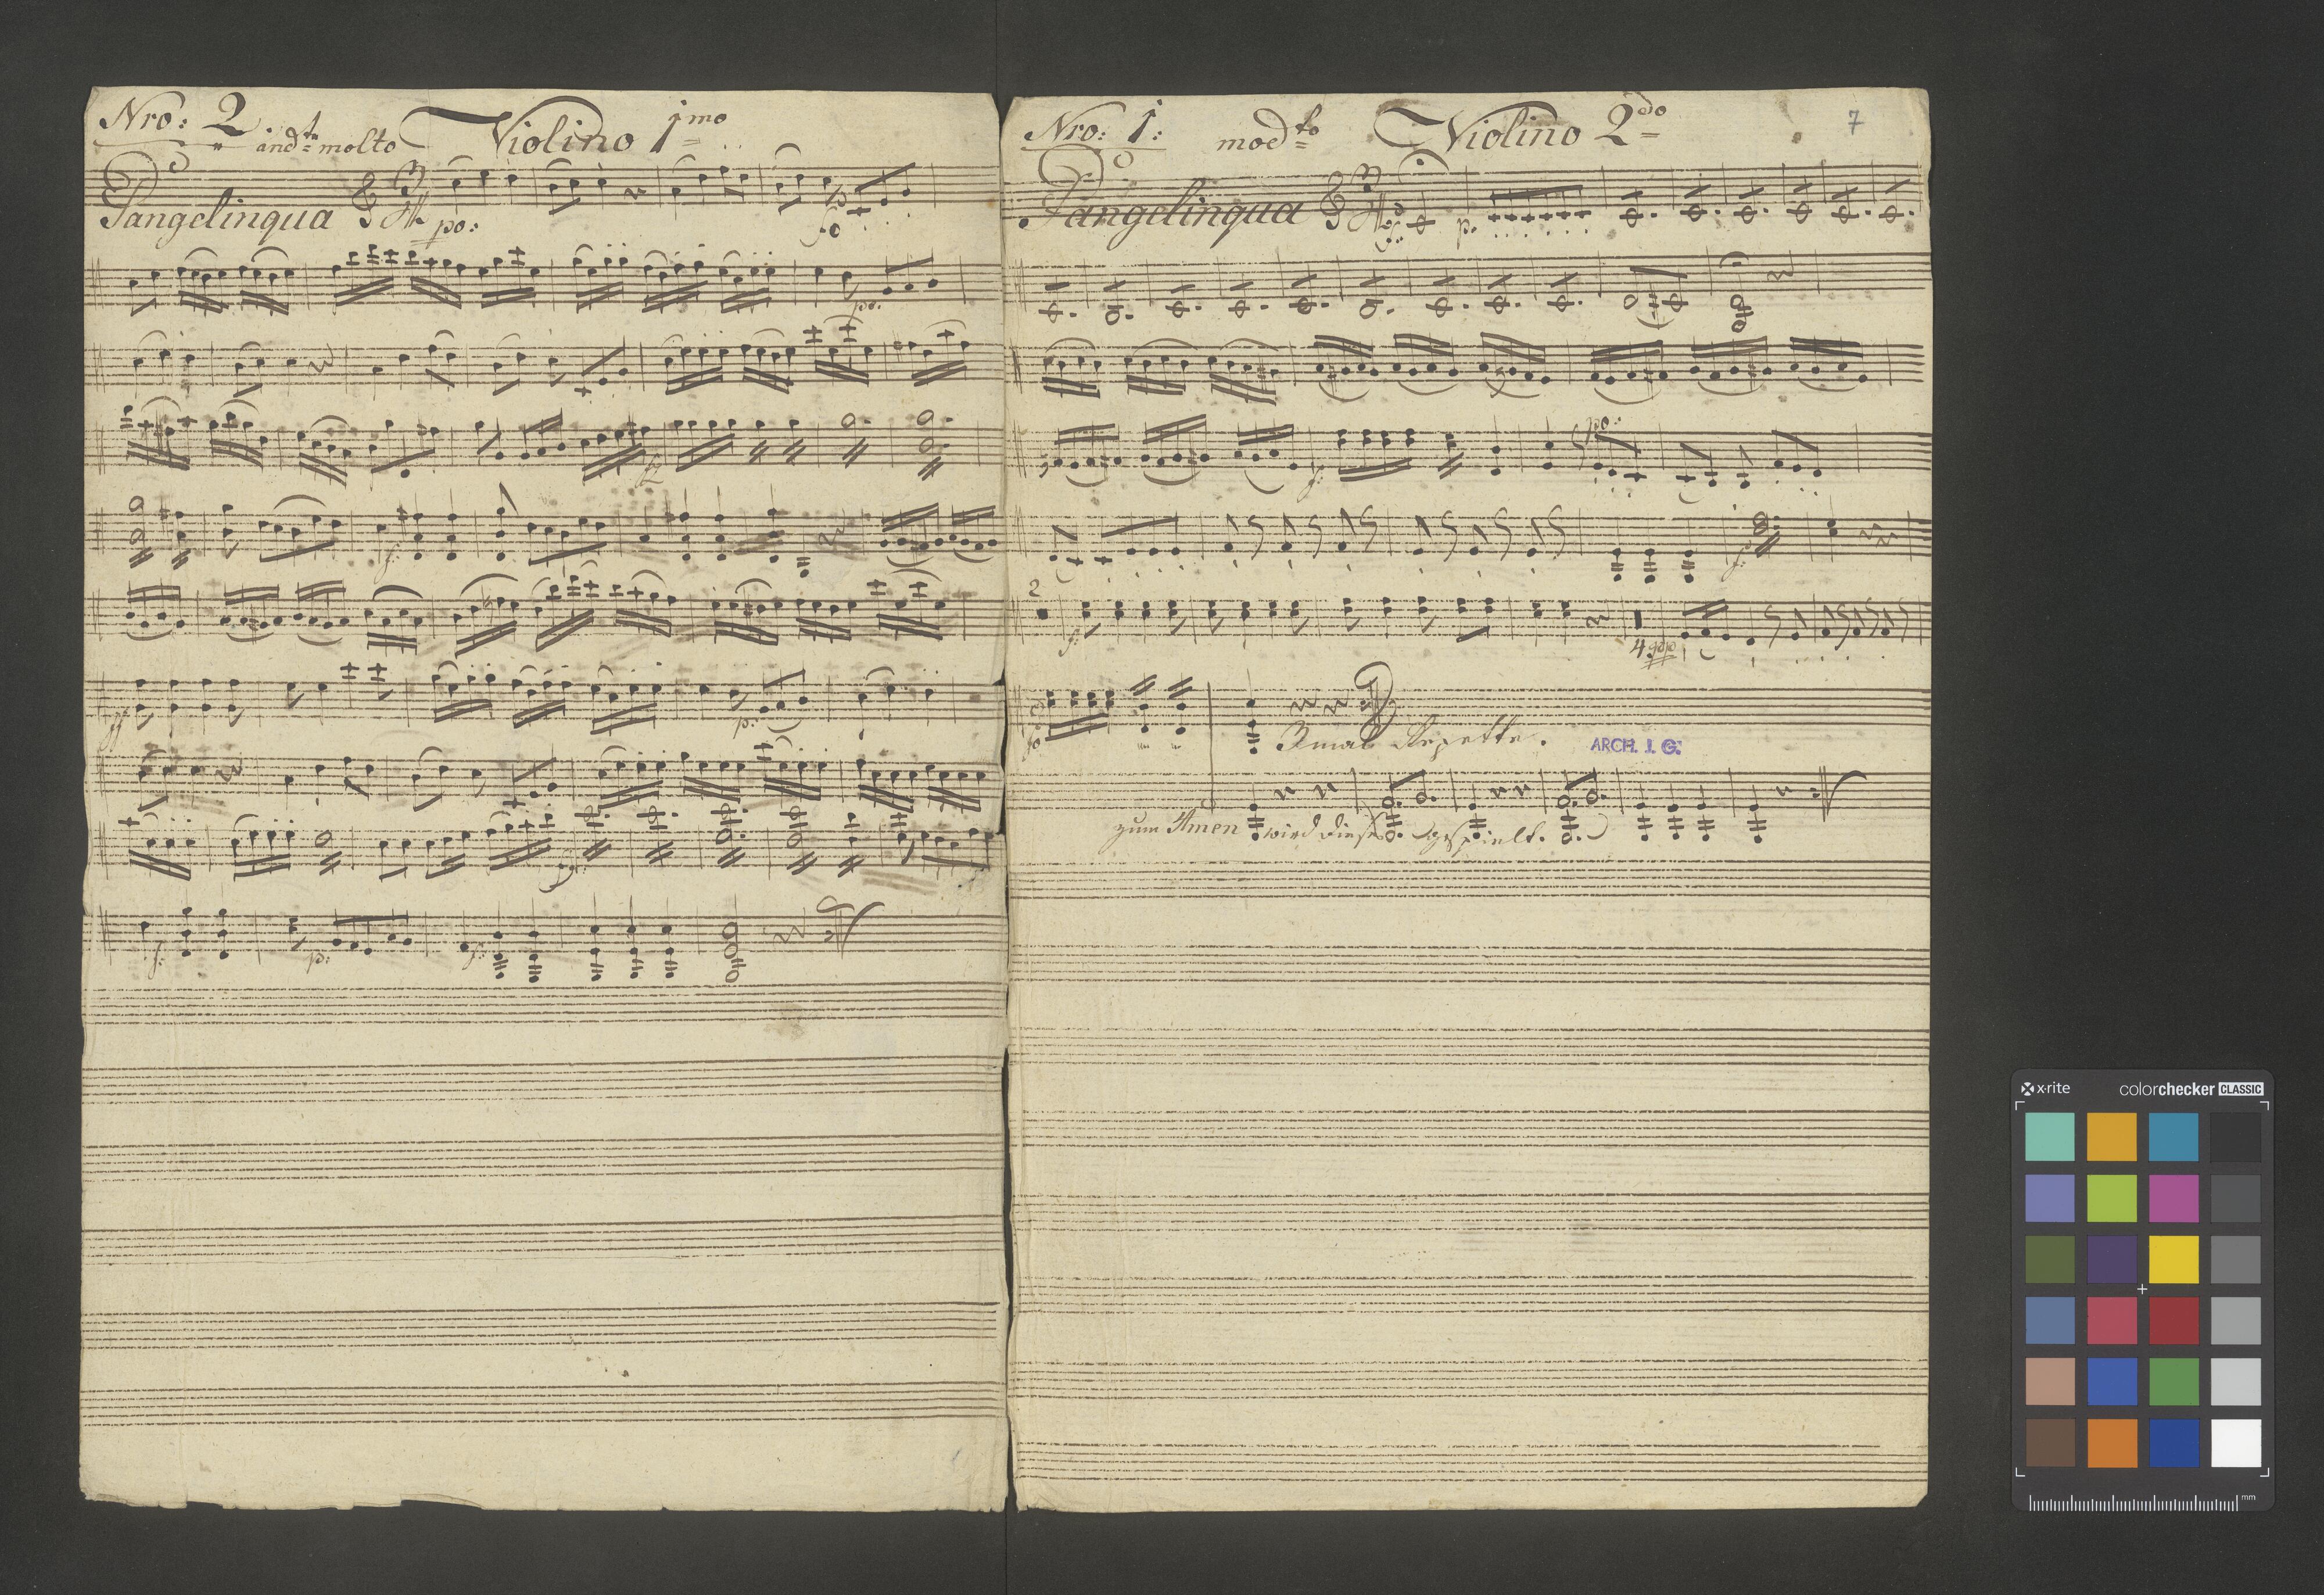 Nro: 2 andte molto Violino 1mo
Pangelinqua po:
fo
po:
f:
ff p:
f: p: f:
Nro: 1: modto Violino 2do 7
Pangelinqua p.
po:
f:
f:
2
f: 4
fo
3mal Repette.
ARCH. I. G.
zum Amen wird dieses gespielt.
x-rite colorchecker CLASSIC
mm